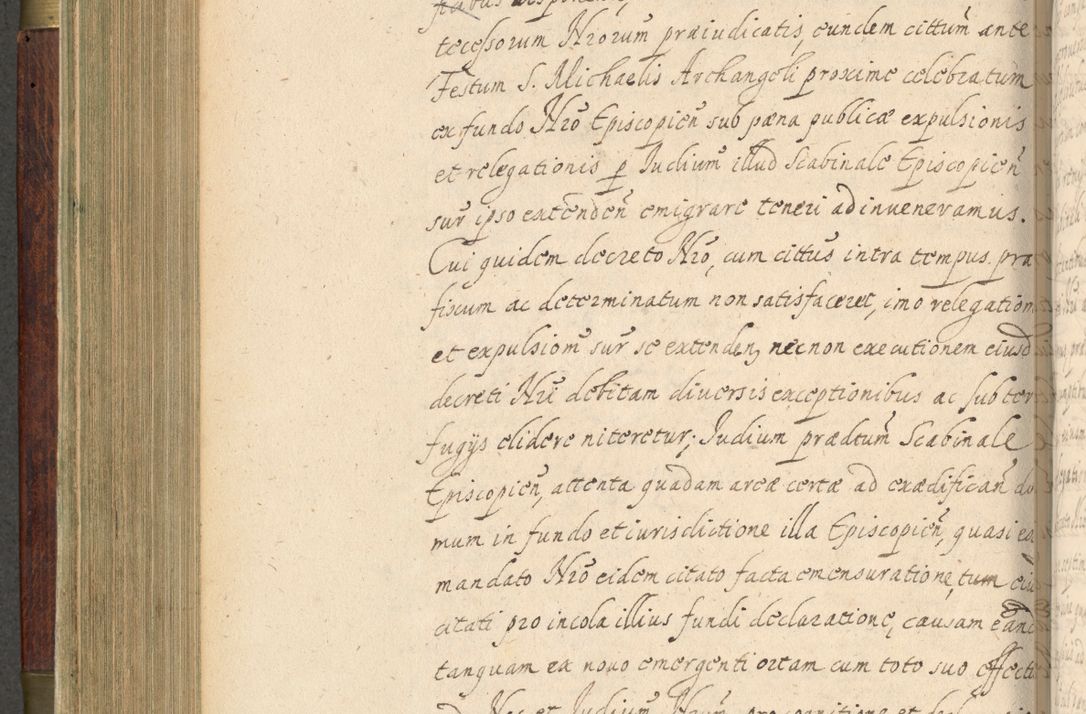 tecessorum Nrorum præiudicatis, eundem cittum̃ ante
Festum S. Michaelis Archangeli proxime celebratum
ex fundo Nro Episcopien̄ sub pæna publicæ expulsionis
et relegationis p Iudium̄ illud Scabinale Episcopien̄
sur̄ ipso extenden̄ emigrare teneri adinveneramus.
Cui quidem decreto Nro, cum cittus̄ intra tempus præ
fixum ac determinatum non satisfaceret, imo relegation
et expulsiom̄ sur̄ se extenden, necnon executionem eiusd
decreti Nri debitam diversis exceptionibus ac subter
fugijs elidere niteretur; Iudium prædtum̄ Scabinale
Episcopien̄, attenta quadam areæ certæ ad exædifican̄ do
mum in fundo et iurisdictione illa Episcopien̄, quasi ex
mandato Nro eidem citato facta emensuratione, tum eius
citati pro incola illius fundi declaratione, causam eand
tanquam ex novo emergenti ortam cum toto suo effectu